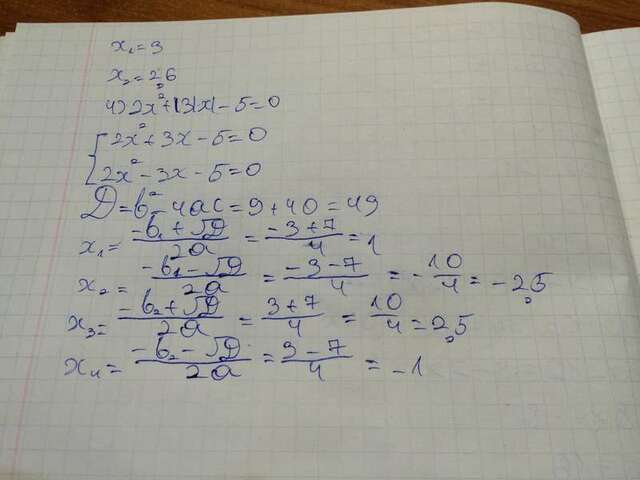 x₁=3
x₂=2,6
4) 2x²+|3|x|-5=0
2x²+3x-5=0
2x²-3x-5=0
D=b²-4ac=9+40=49
x₁= (-b₁+√D)/2a = (-3+7)/4 =1
x₂= (-b₁-√D)/2a = (-3-7)/4 = -10/4 = -2,5
x₃= (-b₂+√D)/2a = (3+7)/4 = 10/4 =2,5
x₄= (-b₂-√D)/2a = (3-7)/4 = -1